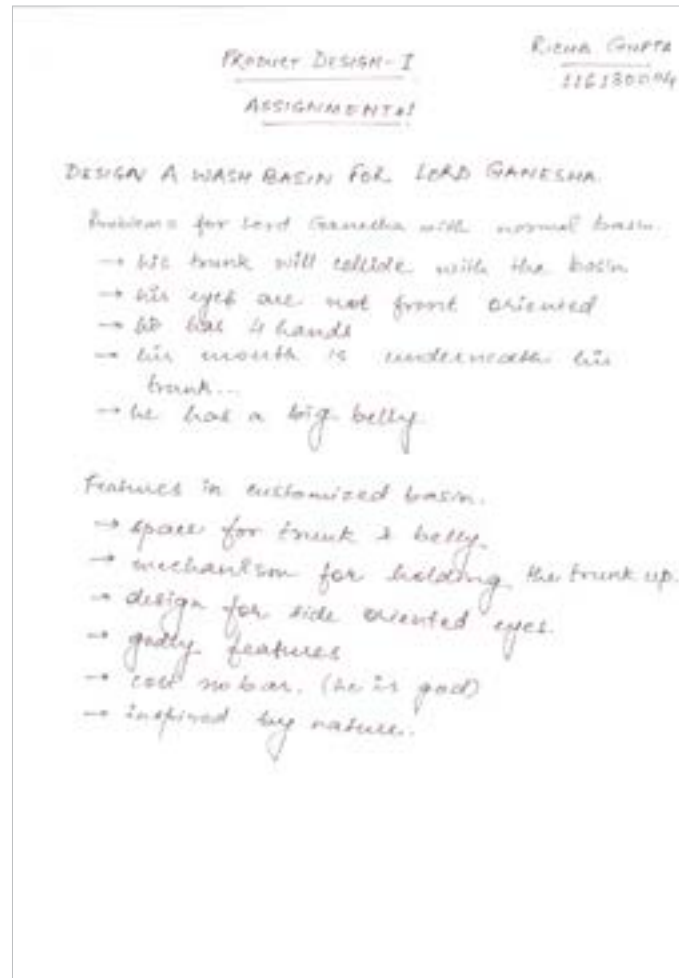 PRODUCT DESIGN - I
RICHA GUPTA
ASSIGNMENT #1
DESIGN A WASH BASIN FOR LORD GANESHA.
Problems for Lord Ganesha with normal basin.
→ his trunk will collide with the basin
→ his eyes are not front oriented
→ he has 4 hands
→ his mouth is underneath his
trunk...
→ he has a big belly
Features in customized basin.
→ space for trunk & belly.
→ mechanism for holding the trunk up.
→ design for side oriented eyes.
→ godly features
→ cost no bar. (he is god)
→ inspired by nature.